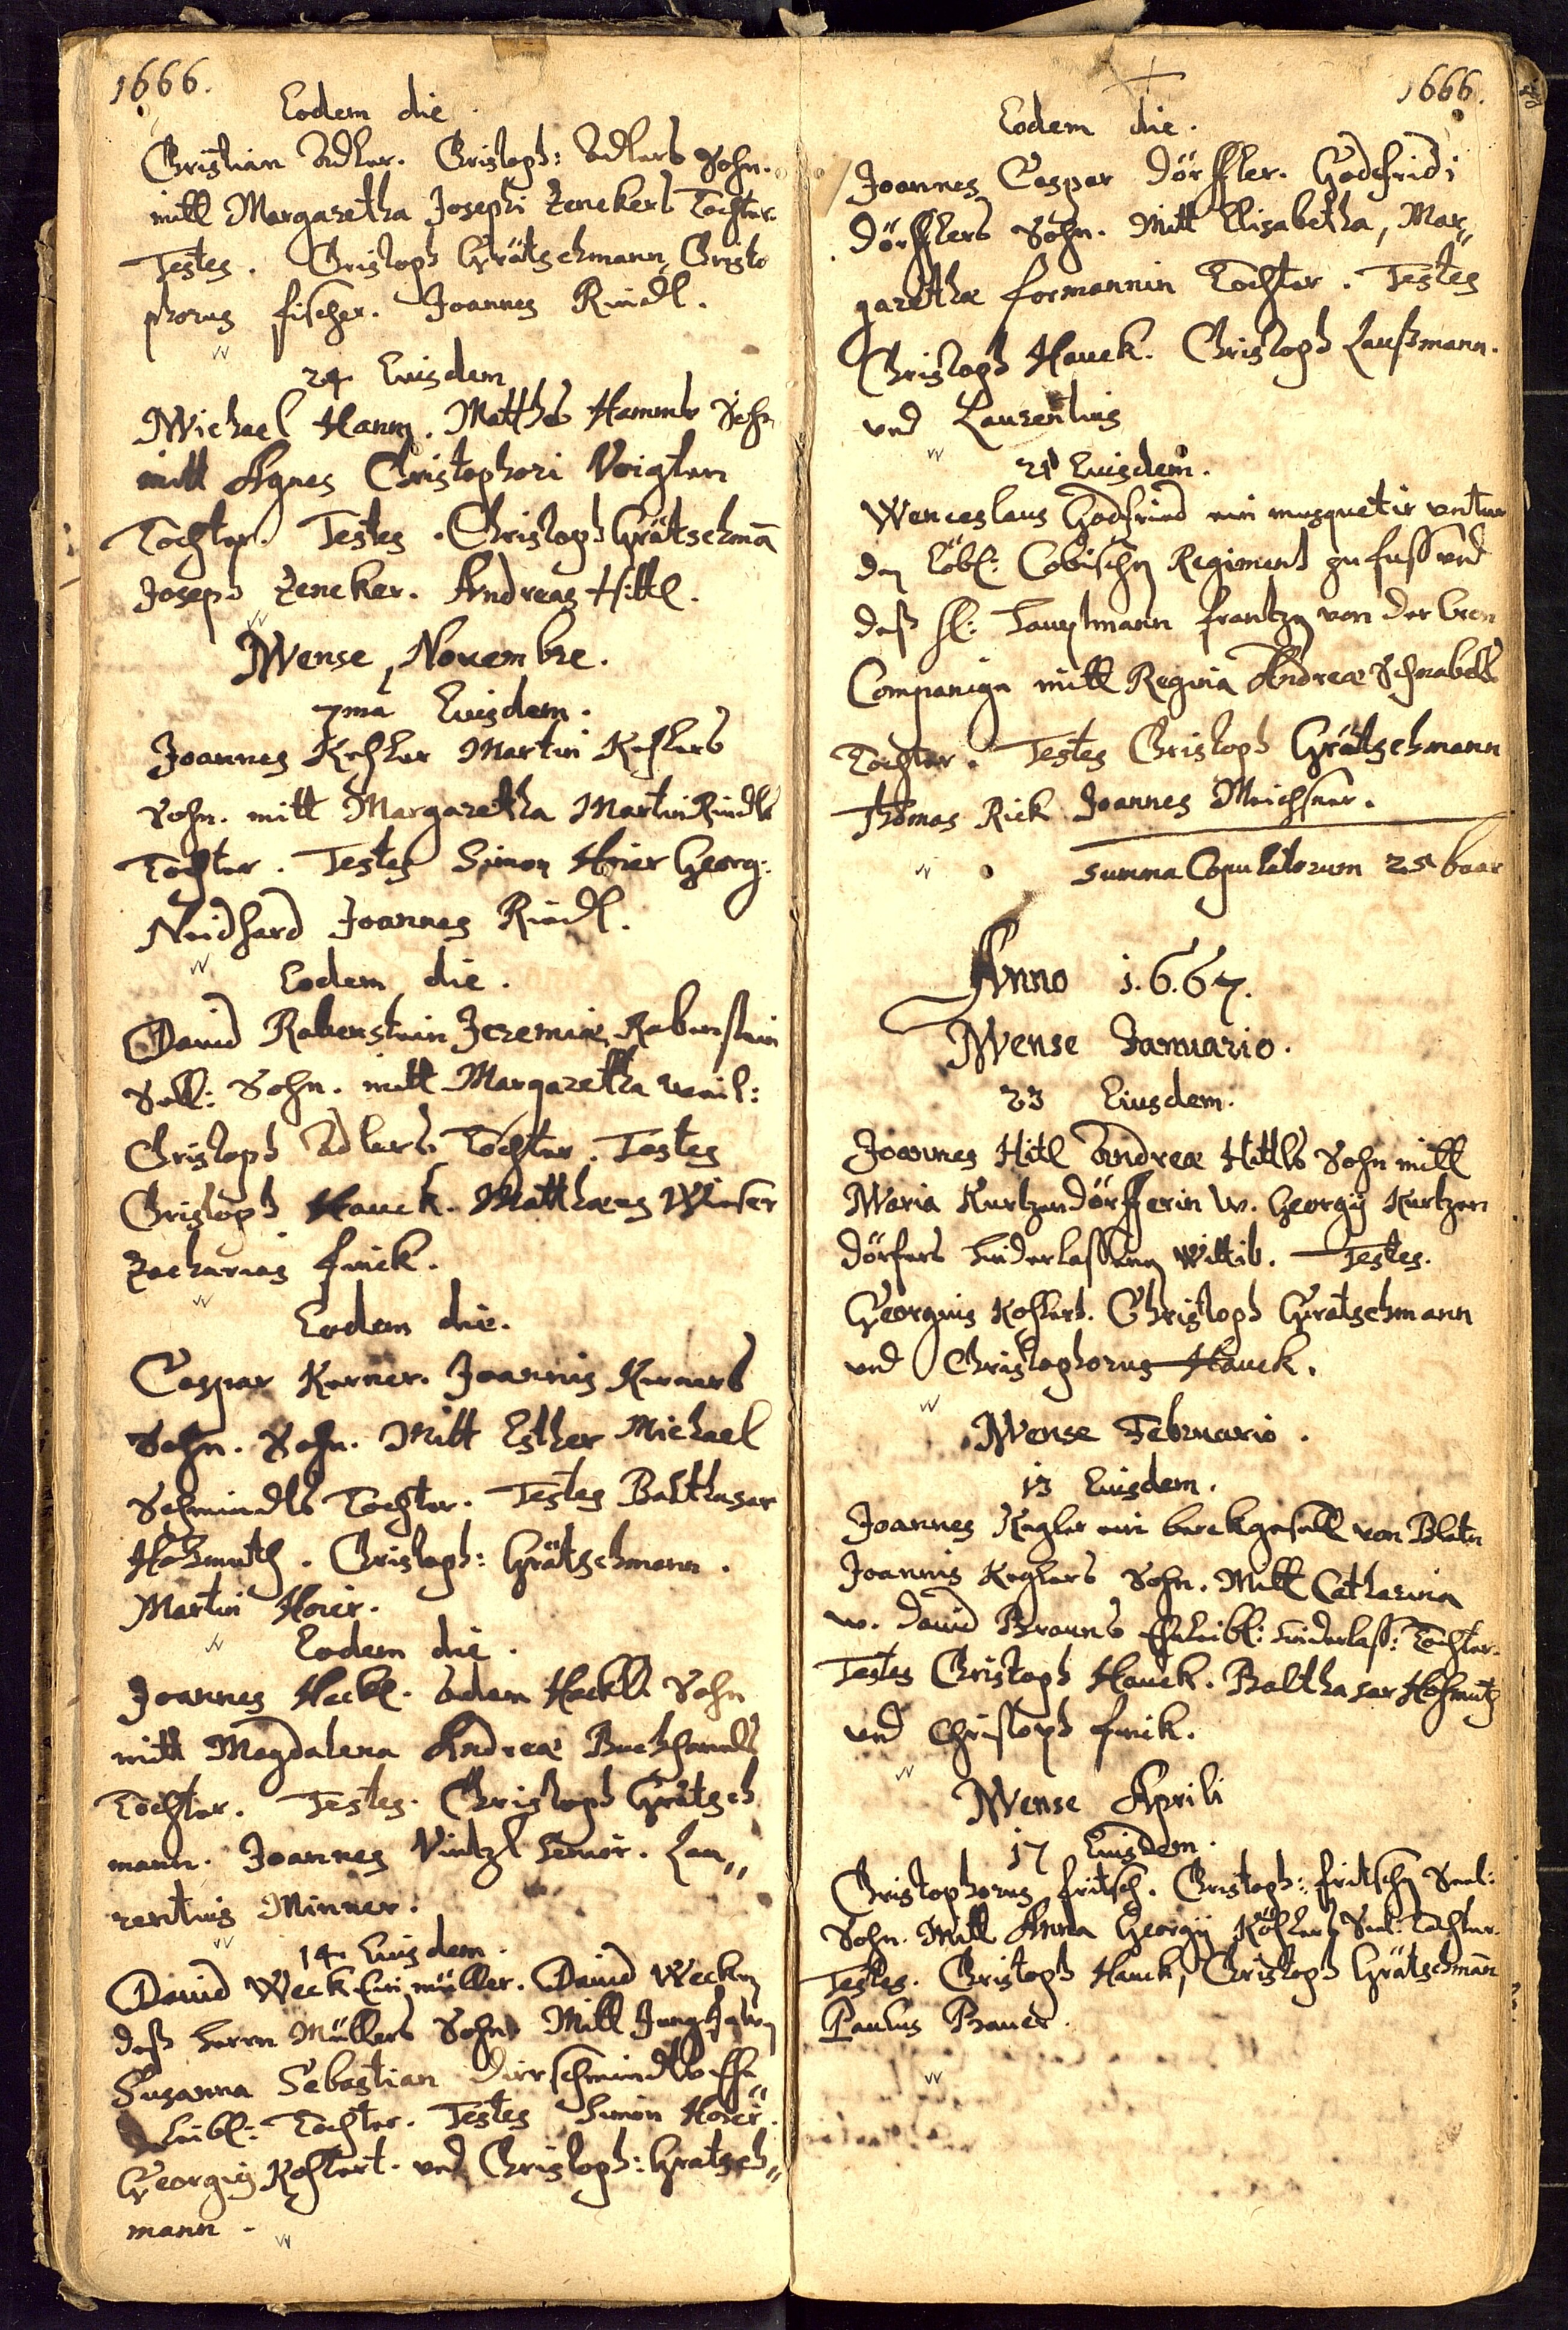 1666.
Eodem die.
Christian Adler. Christoph: Adlers Sohn.
mitt Margaretha Josephi Zenekers Tochter.
Testes. Christoph Grätschmann, Christo
phorus fischer. Joannes Riedl.
24 Eiusdem
Michael Hamm. Matthes Hammls Sohn
mitt Agnes Christophori Voigten
Tochter. Testes. Christoph Grätschmañ
Joseph Zeneker. Andreas Hittl.
Mense Novembre.
7ma Eiusdem.
Joannes Keßler Martin Keßlers
Sohn. mitt Margaretha Martin Riedls
Tochter. Testes Simon Hoier Georg:
Neidhard Joannes Riedl.
Eodem die.
David Rabenstein Jeremiæ Rabenstein
Seel: Sohn. mitt Margaretha weil:
Christoph Adlers Tochter. Testes
Christoph Hauck. Matthæus Wieser
Zacharias finck.
Eodem die.
Caspar Kerner. Joannis Kerners
Sohn. Sohn. Mitt Esther Michael
Schmindls Tochter. Testes Balthasar
Hoßmuth. Christoph: Grätschmann.
Martin Hoier.
Eodem die.
Joannes Heckl. Adam Heckls Sohn
mitt Magdalena Andreæ
Tochter. Testes. Christoph Grätsch
mann. Joannes Vintzl senior. Lau„
rentius Minner.
14 Eiusdem.
David Weck Ein müller. David Wecken
deß herrn Müllers Sohn Mitt Jungfrawen
Susanna Sebastian Dirrschmindls Ehe„
leibl: Tochter. Testes Simon Hoier.
Georgius Kohlert. und Christoph: Grätsch„
mann.
1666.
Eodem die.
Joannes Caspar Dörffler. Godefridi
Dörfflers Sohn. Mitt Elisabetha, Mar„
garethæ formannin Tochter. Testes
Christoph Hauck. Christoph Laußmann.
und Laurentius
21 Eiusdem.
Wenceslaus Godfried ein musquetir unter
den Löbl: Cobischen Regiment zu fuss und
deß hl: Hauptmann frantzen von der
Companign mitt Regina Andreæ Schnabels
Tochter. Testes Christoph Grätschmann
Thomas Rick Joannes Meichsner.
Summa Copulatorum 25 baar
Anno 1.6.67.
Mense Januario.
23 Eiusdem.
Joannes Hitl Andreæ Hittls Sohn mitt
Maria Kurtzendörfferin w. Georgij Kurtzen
dörfers hinderlassenen Wittib. Testes.
Georgius Kohlert. Christoph Grätschmann
und Christophorus Hauck.
Mense Februario.
13 Eiusdem.
Joannes Kegler ein berckgesell von Platn
Joannis Keglers Sohn. Mitt Catharina
w. David Brauns Eheleibl: hinderlass: Tochter.
Testes Christoph Hauck. Balthasar Hoßmuth
und Christoph finck.
Mense Aprili
17 Eiusdem.
Christophorus fritsch. Christoph: fritschen Seel:
Sohn. Mitt Anna Georgij Köhlers Seel: Tochter.
Testes. Christoph Hauck, Christoph Grätschmañ
Paulus Bauer.